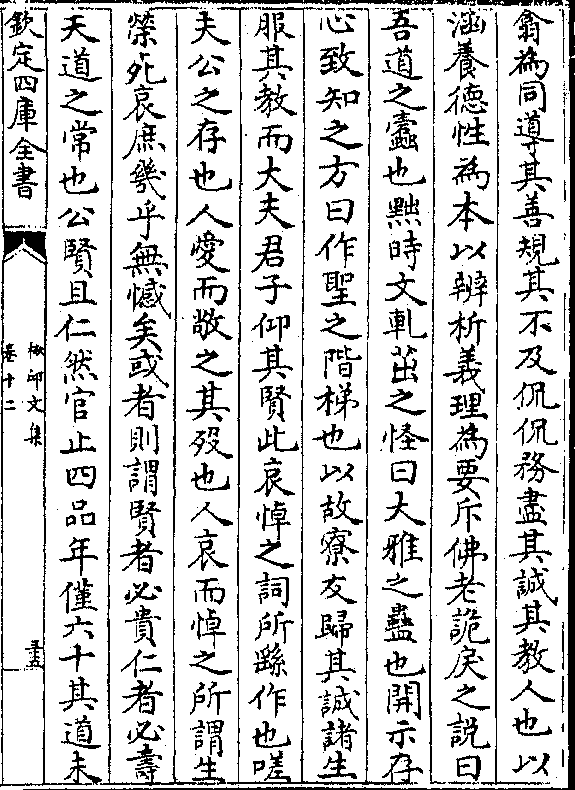 翕為同導其善規其不及侃侃務盡其誠其教人也以
涵養德性為本以辨析義理為要斥佛老詭戾之説曰
吾道之蠹也黜時文軋茁之怪曰大雅之蠱也開示存
心致知之方曰作聖之階梯也以故寮友歸其誠諸生
服其教而大夫君子仰其賢此哀悼之詞所繇作也嗟
夫公之存也人愛而敬之其歿也人哀而悼之所謂生
榮死哀庶幾乎無憾矣或者則謂賢者必貴仁者必壽
天道之常也公賢且仁然官止四品年僅六十其道未
欽定四庫全書
文集
卷十二